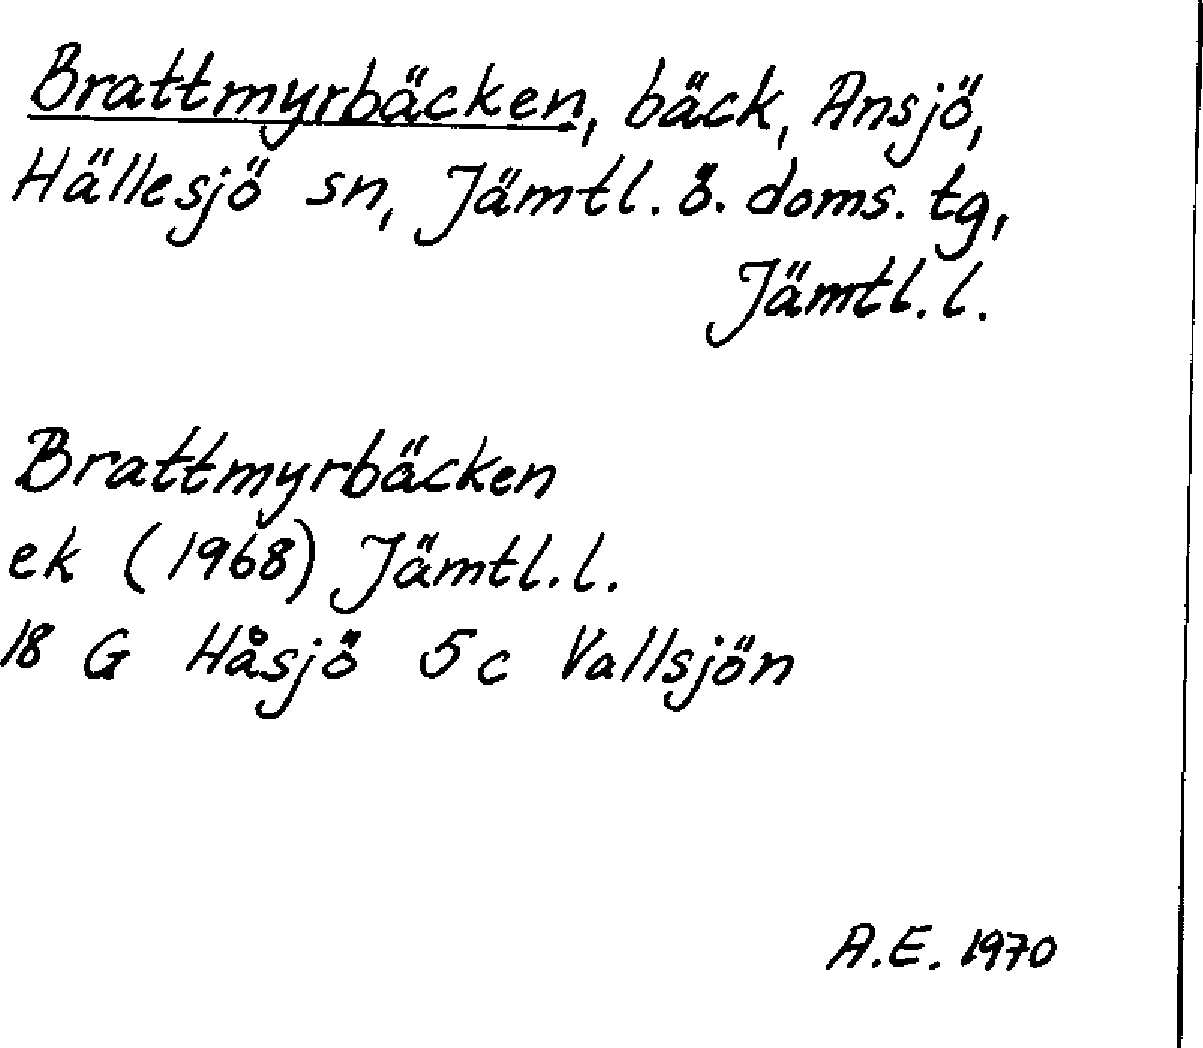 Brattmyrbäcken, bäck, Ansjö,
Hällesjö sn, Jämtl. ö. doms. tg,
Jämtl. l.
Brattmyrbäcken
ek (1968) Jämtl. l.
18 G Håsjö 5c Vallsjön
A.E. 1970